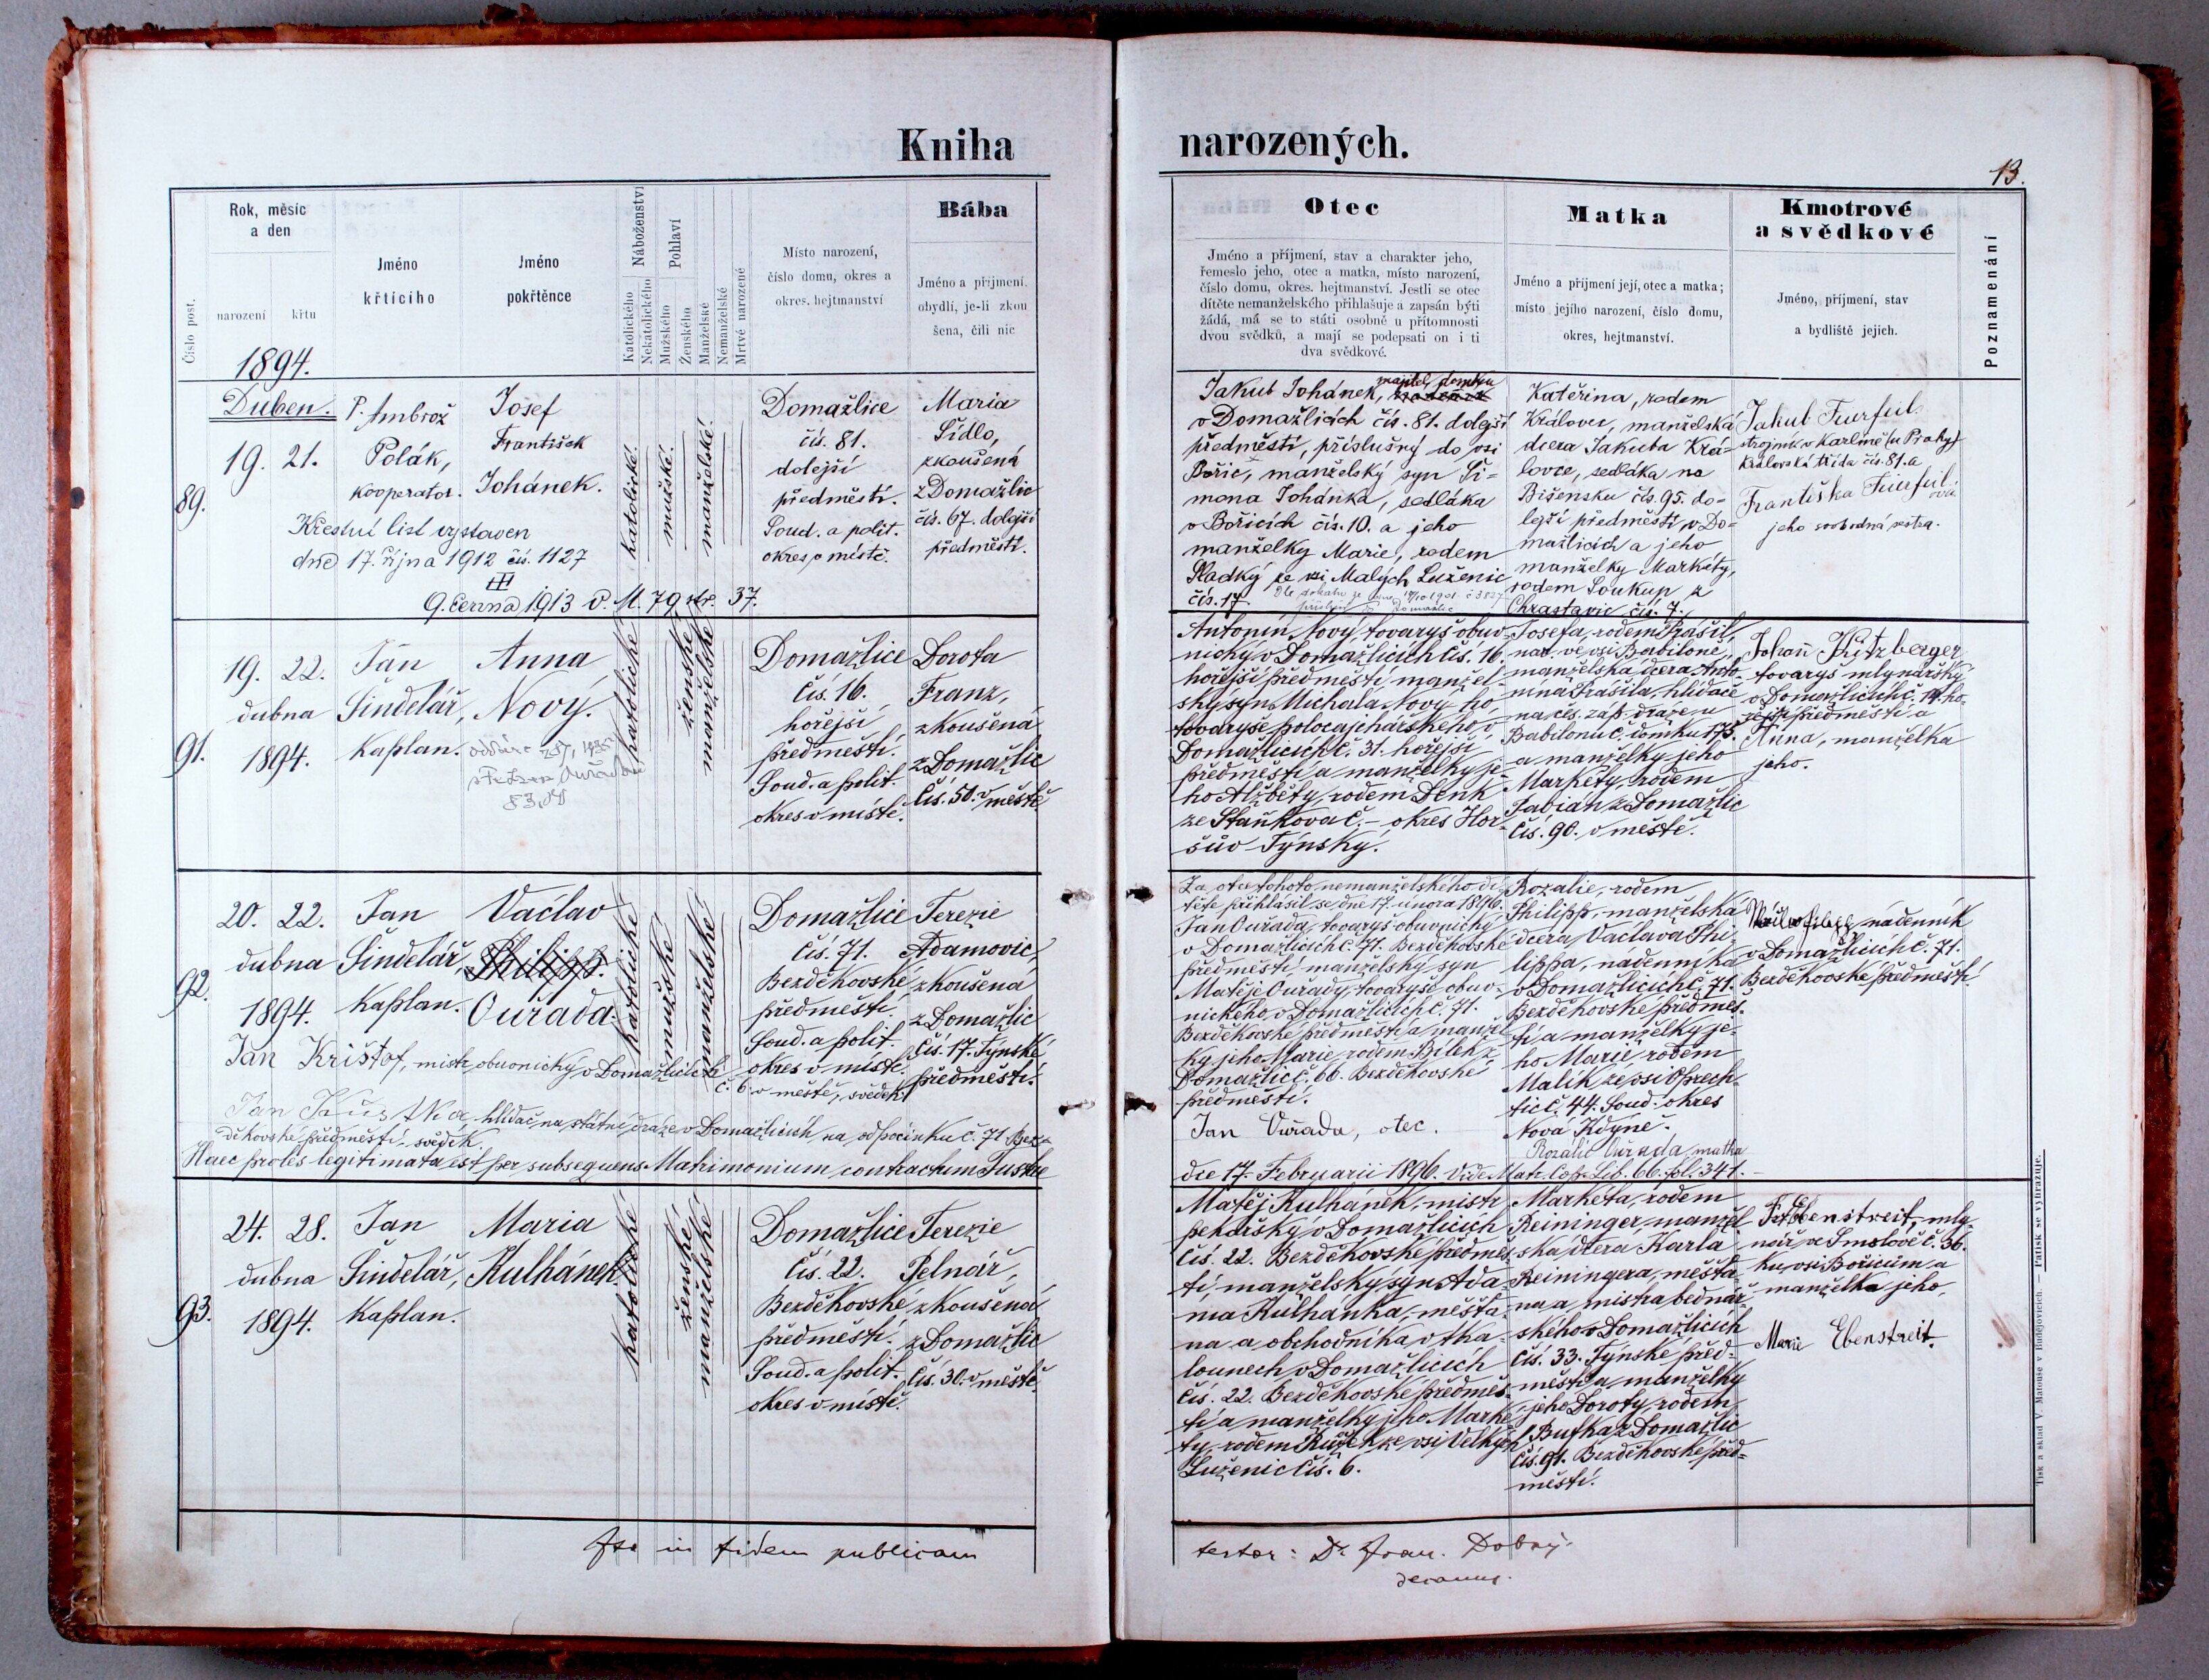 Kniha
narozených.
13.
Číslo post.
Rok, měsíc
a den
narození
křtu
1894.
Jméno
křtícího
Jméno
pokřtěnce
Náboženství
Katolického
Nekatolického
Pohlaví
Mužského
Ženského
Manželské
Nemanželské
Mrtvě narozené
Místo narození,
číslo domu, okres a
okres. hejtmanství
Bába
Jméno a příjmení.
obydlí, je-li zkou
šena, čili nic
Otec
Jméno a příjmení, stav a charakter jeho,
řemeslo jeho, otec a matka, místo narození,
číslo domu, okres. hejtmanství. Jestli se otec
dítěte nemanželského přihlašuje a zapsán býti
žádá, má se to státi osobně u přítomnosti
dvou svědků, a mají se podepsati on i ti
dva svědkové.
Matka
Jméno a příjmení její, otec a matka;
místo jejího narození, číslo domu,
okres, hejtmanství.
Kmotrové
a svědkové
Jméno, příjmení, stav
a bydliště jejich.
Poznamenání
Duben.
89.
19. 21.
P. Ambrož
Polák,
kooperator.
Josef
František
Johánek.
katolické.
mužské.
manželské.
Domažlice
čís. 81.
dolejší
předměstí.
Soud. a polit.
okres v místě.
Maria
Sídlo,
zkoušená
z Domažlic
čís. 67. dolejší
předměstí.
Křestní list vystaven
dne 17. října 1912 čís. 1127
9. června 1913 v. M. 79 str. 37.
Jakub Johánek, majitel domku
v Domažlicích čís. 81. dolejší
předměstí, příslušný do vsi
Bořic, manželský syn Ši-
mona Johánka, sedláka
v Bořicích čís. 10. a jeho
manželky Marie, rodem
Hladký ze vsi Malých Luženic
čís. 17.
Kateřina, rodem
Královec, manželská
dcera Jakuba Krá-
lovce, sedláka na
Bišensku čís. 95. do-
lejší předměstí v Do-
mažlicích a jeho
manželky Markéty,
rodem Soukup z
Chrastavic čís. 7.
Jakub
strojník v Karlíně (u Prahy)
Královská třída čís. 81. a
Františka
jeho svobodná sestra.
91.
19. 22.
dubna
1894.
Jan
Šindelář,
Kaplan.
Anna
Nový.
katolické
ženské
manželské
Domažlice
čís. 16.
hořejší
předměstí.
Soud. a polit.
okres v místě.
Dorota
Franz,
zkoušená
z Domažlic
čís. 50. v městě
Antonín Nový, tovaryš obuv-
nický v Domažlicích čís. 16.
hořejší předměstí manžel-
ský syn Michala Nový ho,
tovaryše v
Domažlicích č. 31. hořejší
předměstí a manželky je-
ho Alžběty, rodem Denk
ze Staňkova č. – okres Hor-
šův Týnský.
Josefa, rodem Prášil,
nar. ve vsi Babiloně,
manželská dcera Anto-
nína Prášila, hlídače
na čes. záp. dráze u
Babilonu č. domku 175.
a manželky jeho
Markéty, rodem
Fabian z Domažlic
čís. 90. v městě.
Johann Kitzberger
tovaryš mlynářský
v Domažlicích č. 14. ho-
řejší předměstí a
Anna, manželka
jeho.
92.
20. 22.
dubna
1894.
Jan
Šindelář,
Kaplan.
Václav
Philipp.
Ouřada.
katolické
mužské
manželské
Domažlice
čís. 71.
Bezděkovské
předměstí.
Soud. a polit.
okres v místě.
Terezie
Adamovic,
zkoušená
z Domažlic
čís. 17. Týnské
předměstí.
Jan Krištof, mistr obuvnický v Domažlicích
č. 6 v městě, svědek
hlídač na státní dráze v Domažlicích na odpočinku č. 71 Bez-
děkovské předměstí, svědek.
Haec proles legitimata est per subsequens Matrimonium contractum Tustae
Za otce tohoto nemanželského dí-
těte přihlásil se dne 17. února 1896.
Jan Ouřada, tovaryš obuvnický
v Domažlicích č. 71. Bezděkovské
předměstí, manželský syn
Matěje Ouřady, tovaryše obuv-
nického v Domažlicích č. 71.
Bezděkovské předměstí a manžel-
ky jeho Marie, rodem Bílek z
Domažlic č. 66. Bezděkovské
předměstí.
Jan Ouřada, otec.
Rozalie, rodem
Philipp, manželská
dcera Václava Phi-
lippa, nádenníka
v Domažlicích č. 71.
Bezděkovské předměs-
tí a manželky je-
ho Marie, rodem
Malík ze vsi Oprech-
tic č. 44. Soud. okres
Nová Kdyně.
Rozalie Ouřada, matka
nádenník
v Domažlicích č. 71.
Bezděkovské předměstí.
die 17. Februarii 1896. Vide Matr. Cop. Lib. 66. fol. 341.
93.
24. 28.
dubna
1894.
Jan
Šindelář,
Kaplan.
Maria
Kulhánek
katolické
ženské
manželské
Domažlice
čís. 22.
Bezděkovské
předměstí.
Soud. a polit.
okres v místě.
Terezie
Pelnář,
zkoušená
z Domažlic
čís. 30. v městě.
Matěj Kulhánek, mistr
pekařský v Domažlicích
čís. 22. Bezděkovské předměs-
tí, manželský syn Ada-
ma Kulhánka, měšťa-
na a obchodníka v tka-
lounech v Domažlicích
čís. 22. Bezděkovské předměs-
tí a manželky jeho Marke-
ty, rodem Růžek ze vsi Velkých
Luženic čís. 6.
Marketa, rodem
Reininger, manžel-
ská dcera Karla
Reiningera, měšťa-
na a mistra bednář-
ského v Domažlicích
čís. 33. Týnské před-
městí a manželky
jeho Doroty, rodem
Bufka z Domažlic
čís. 91. Bezděkovské před-
městí.
Ebenstreit, mly-
nář ve Smolově č. 36.
ku vsi Bořicům a
manželka jeho,
Marie Ebenstreit.
Ita in fidem publicam
testor: Dr. Fran. Dobrý
decanus.
Tisk a sklad V. Matouše v Budějovicích. — Patisk se vyhrazuje.